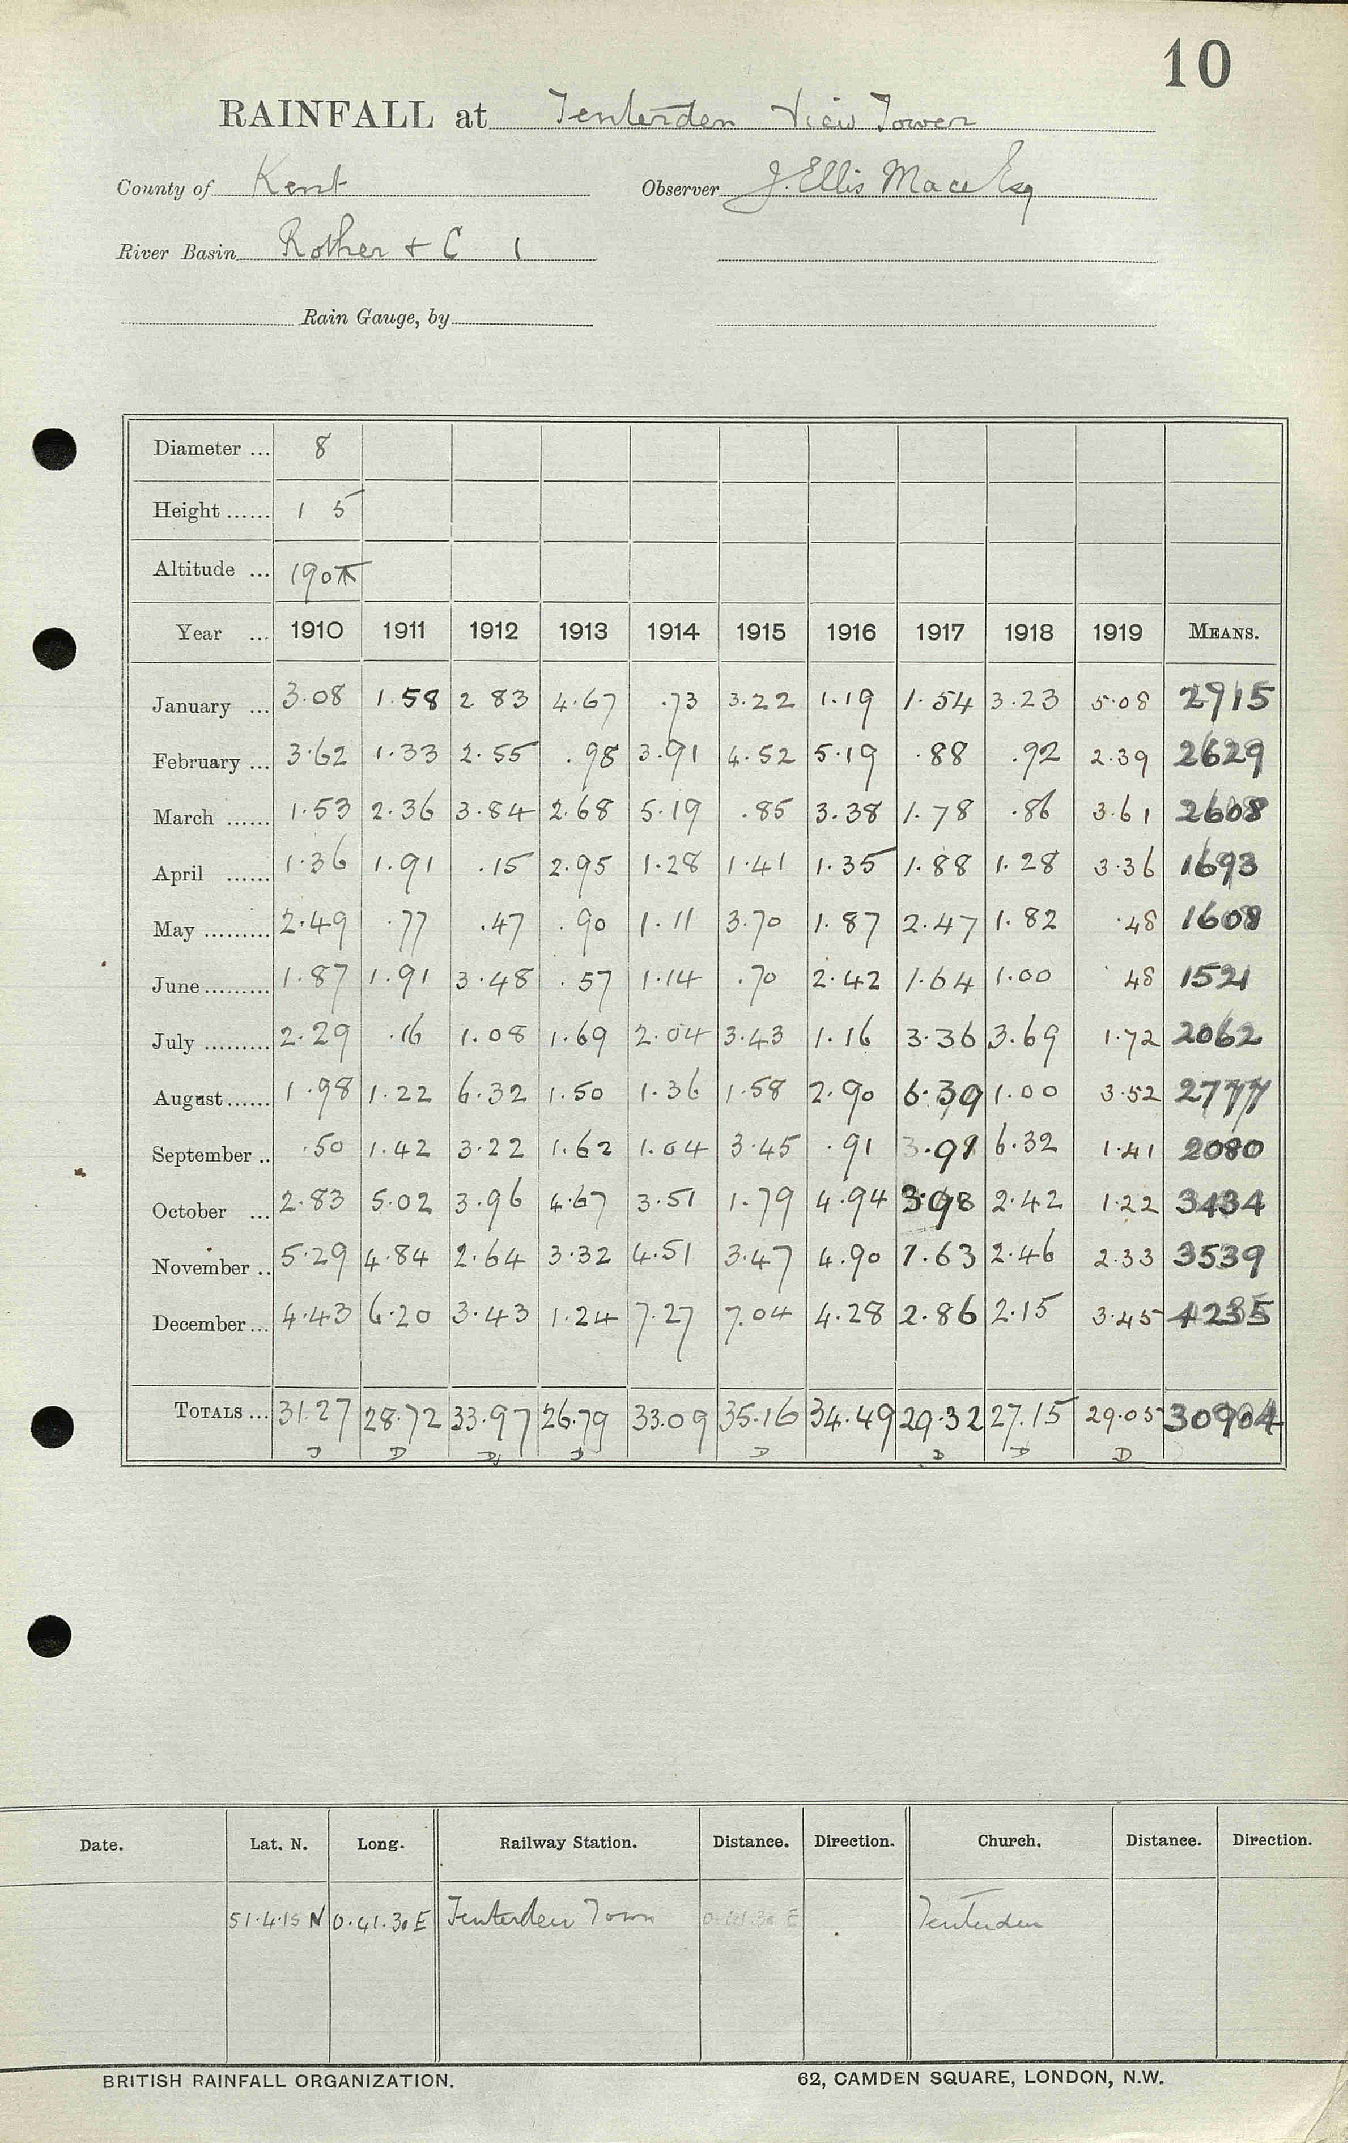 10
RAINFALL at Tenterden View Tower
County of Kent Observer J. Ellis Mace Esq
River Basin Rother & C 1
Rain Gauge, by
Diameter ... 8
Height ...... 1 5
Altitude ... 190ft
Year ... 1910 1911 1912 1913 1914 1915 1916 1917 1918 1919 MEANS.
January ... 3.08 1.58 2 83 4.67 .73 3.22 1.19 1.54 3.23 5.08 2915
February ... 3.62 1.33 2.55 .98 3.91 4.52 5.19 .88 .92 2.39 2629
March ...... 1.53 2.36 3.84 2.68 5.19 .85 3.38 1.78 .86 3.61 2608
April ...... 1.36 1.91 .15 2.95 1.28 1.41 1.35 1.88 1.28 3.36 1693
May ......... 2.49 .77 .47 .90 1.11 3.70 1.87 2.47 1.82 .48 1608
June ......... 1.87 1.91 3.48 .57 1.14 .70 2.42 1.64 1.00 48 1521
July ......... 2.29 .16 1.08 1.69 2.04 3.43 1.16 3.36 3.69 1.72 2062
August ...... 1.98 1.22 6.32 1.50 1.36 1.58 2.90 6.39 1.00 3.52 2777
September .. .50 1.42 3.22 1.62 1.04 3.45 .91 6.32 1.41 2080
October ... 2.83 5.02 3.96 4.67 3.51 1.79 4.94 3.98 2.42 1.22 3434
November .. 5.29 4.84 2.64 3.32 4.51 3.47 4.90 1.63 2.46 2.33 3539
December ... 4.43 6.20 3.43 1.24 7.27 7.04 4.28 2.86 2.15 3.45 4235
TOTALS ... 31.27 28.72 33.97 26.79 33.09 35.16 34.49 29.32 27.15 29.05 30904
D D D D D D D D
Date. Lat. N. Long. Railway Station. Distance. Direction. Church. Distance. Direction.
51.4.15 N 0.41.30 E Tenterden Town 0.41.30 E Tenterden
BRITISH RAINFALL ORGANIZATION. 62, CAMDEN SQUARE, LONDON, N.W.